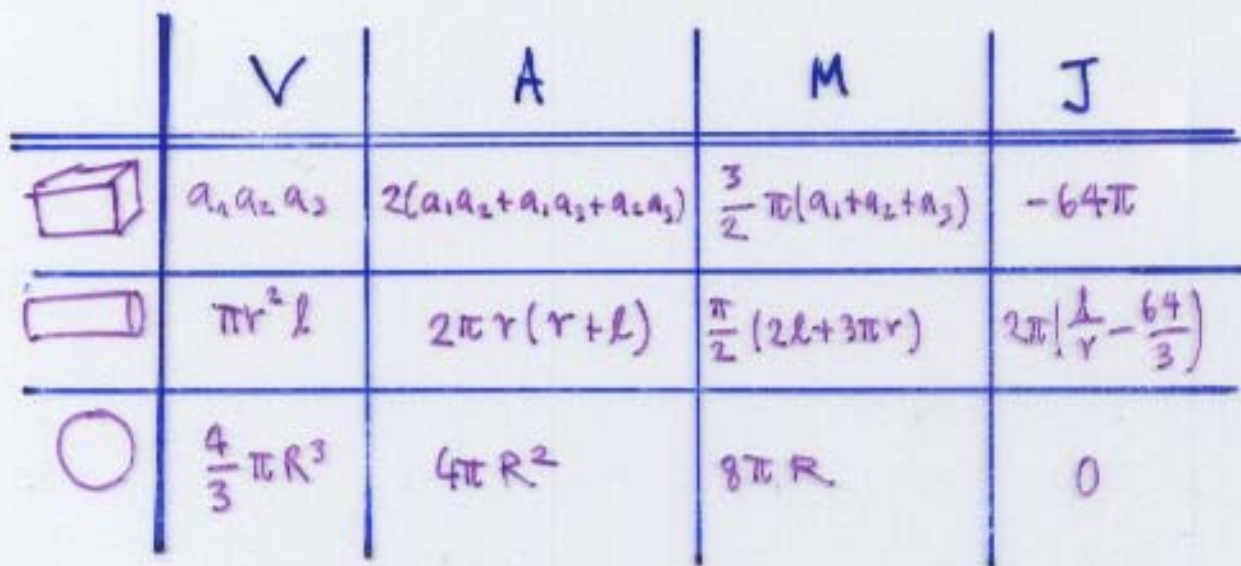 V A M J
a₁a₂a₃ 2(a₁a₂+a₁a₃+a₂a₃) 3/2 π(a₁+a₂+a₃) -64π
πr²l 2πr(r+l) π/2 (2l+3πr) 2π(l/r - 64/3)
4/3 πR³ 4πR² 8πR 0